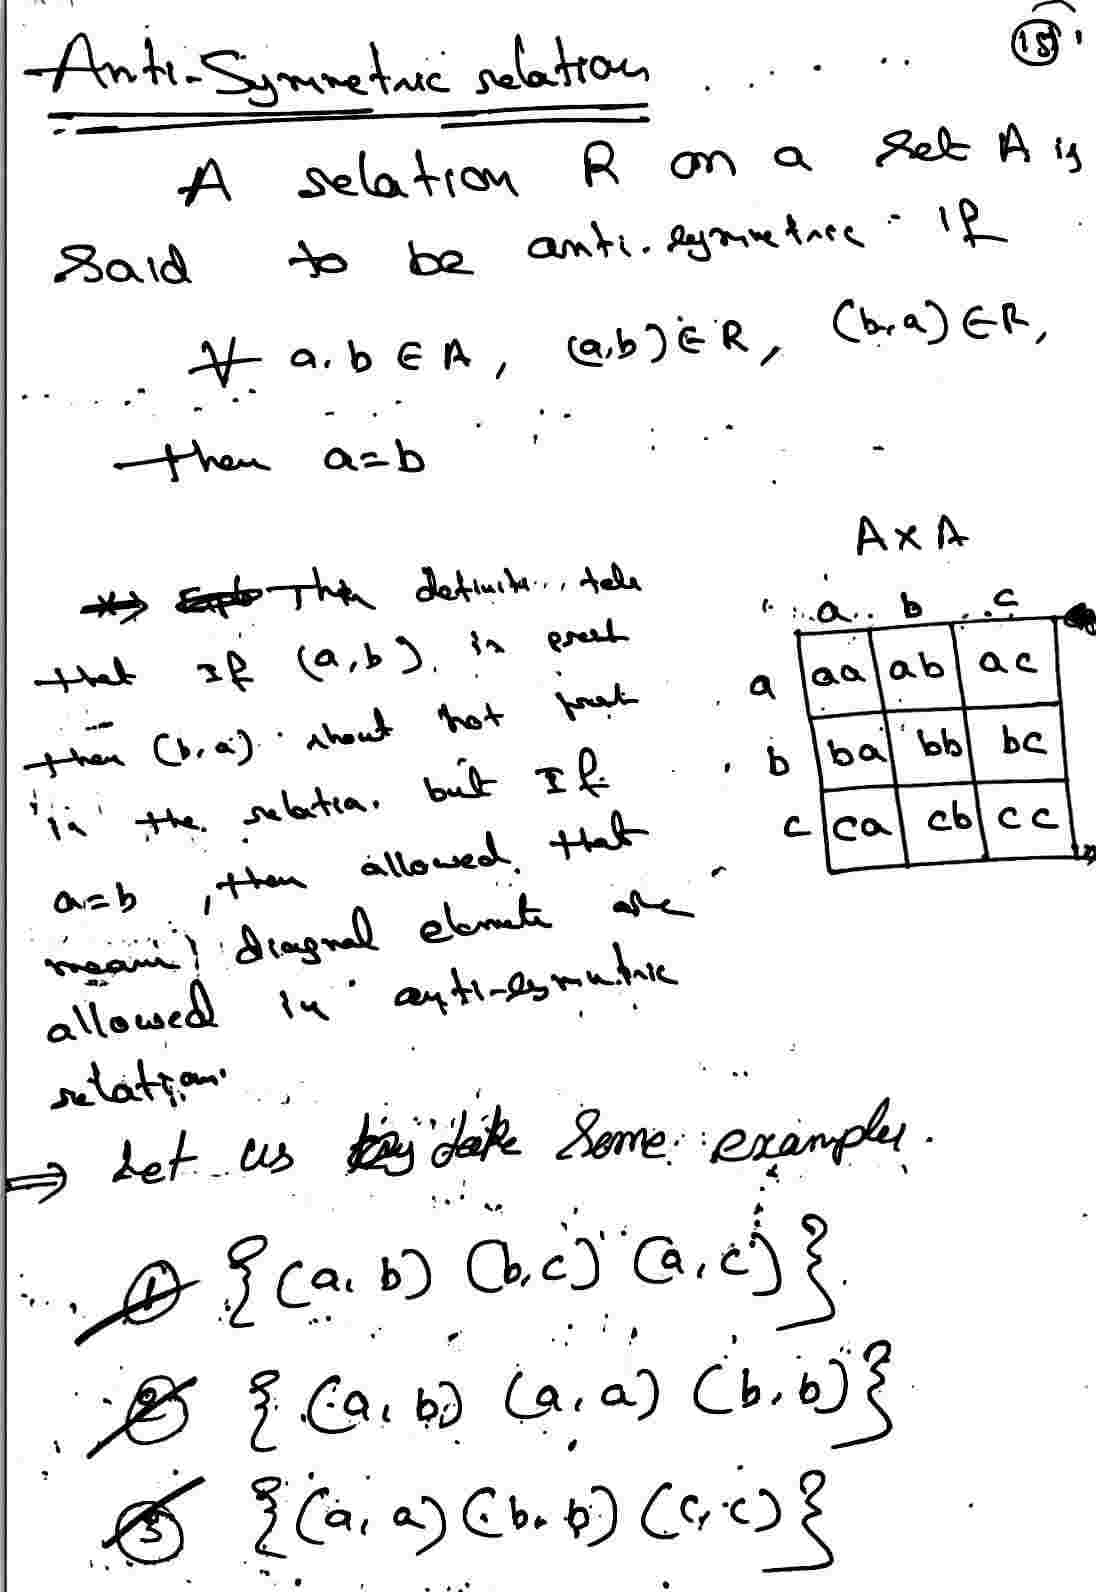 15
Anti-Symmetric relation
A relation R on a set A is
said to be anti-symmetric if
∀ a, b ∈ A, (a,b) ∈ R, (b,a) ∈ R,
then a=b
A x A
a b c
a aa ab ac
b ba bb bc
c ca cb cc
The definiti.. tells
that If (a,b) is
then (b,a) not
in the relation. but If
a=b, then allowed. that
mean diagnal elements are
allowed in anti-symmetric
relation.
⇒ Let us take Some examples.
① {(a,b) (b,c) (a,c)}
② {(a,b) (a,a) (b,b)}
③ {(a,a) (b,b) (c,c)}